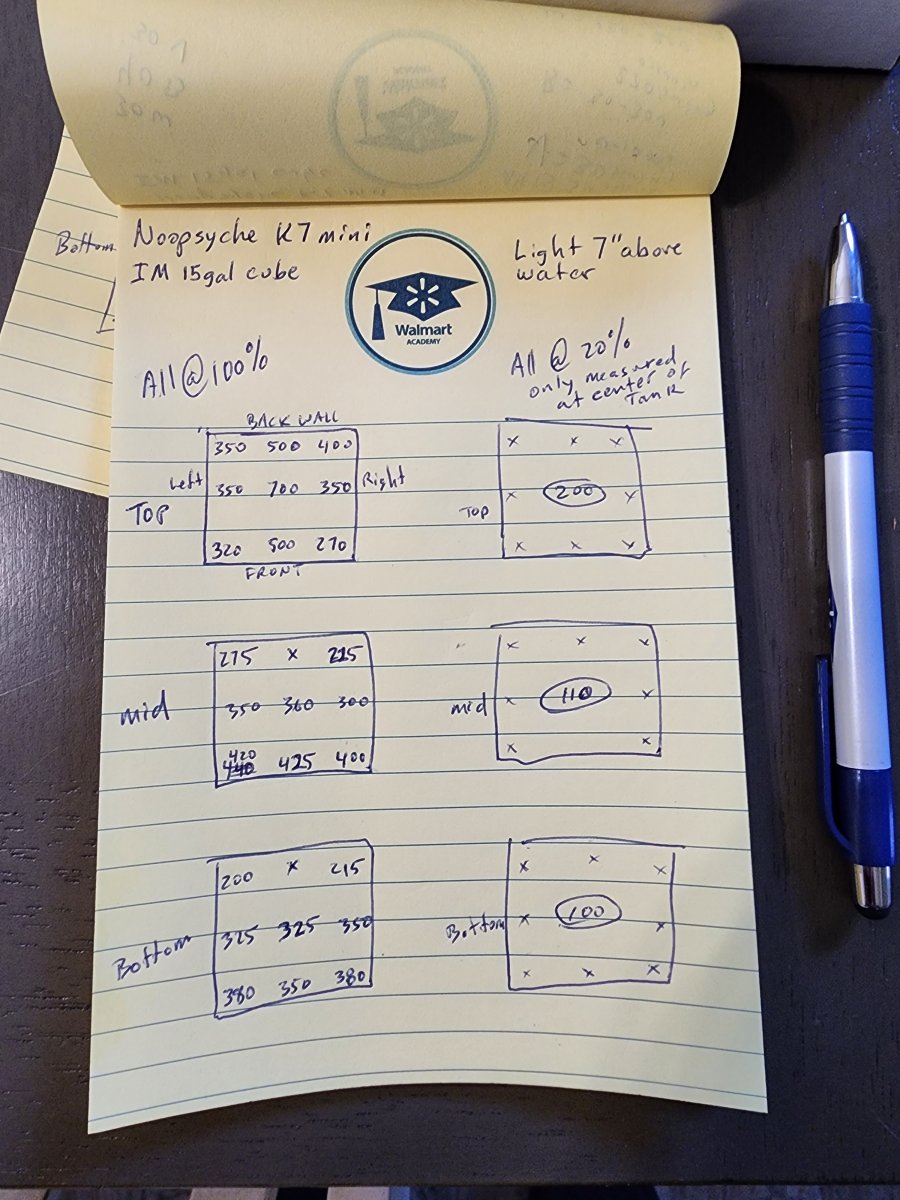 Bottom
Noopsyche K7 mini
IM 15gal cube
Walmart
ACADEMY
Light 7" above
water
All @ 100%
All @ 20%
only measured
at center of
Tank
BACK WALL
350 500 400
Left 350 700 350 Right
TOP
320 500 270
FRONT
x x x
x 200 x
TOP
x x x
275 x 225
mid 350 360 300
420
440 425 400
x x x
mid x 110 x
x x
200 x 215
Bottom 325 325 350
380 350 380
x x x
Bottom x 100 x
x x x